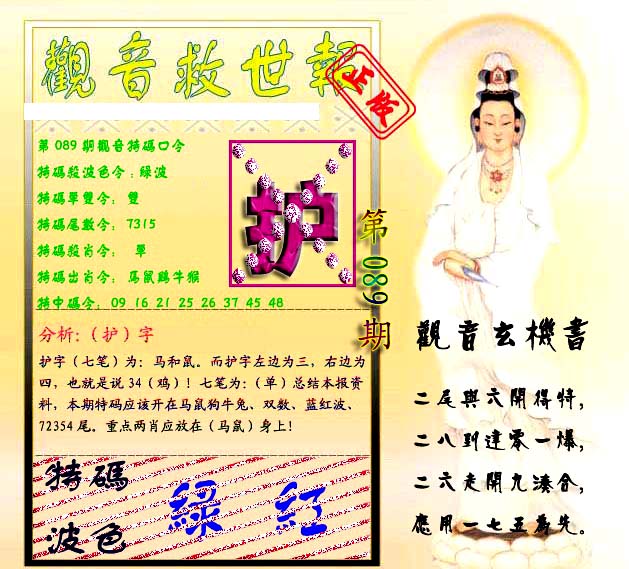 觀音救世報
正版
第089期觀音特碼口令
特碼殺波色令：綠波
特碼單雙令： 雙
特碼尾數令： 7315
特碼殺肖令： 單
特碼出肖令： 馬鼠鷄牛猴
特中碼令： 09 16 21 25 26 37 45 48
护
第089期
分析:（护）字
护字（七笔）为：马和鼠。而护字左边为三，右边为
四，也就是说34（鸡）！七笔为：（单）总结本报资
料，本期特码应该开在马鼠狗牛兔、双数、蓝红波、
72354尾。重点两肖应放在（马鼠）身上！
特碼
波色
綠 紅
觀音玄機書
二尾與六開得特，
二八到達零一爆，
二六走開九湊合，
應用一七五為先。